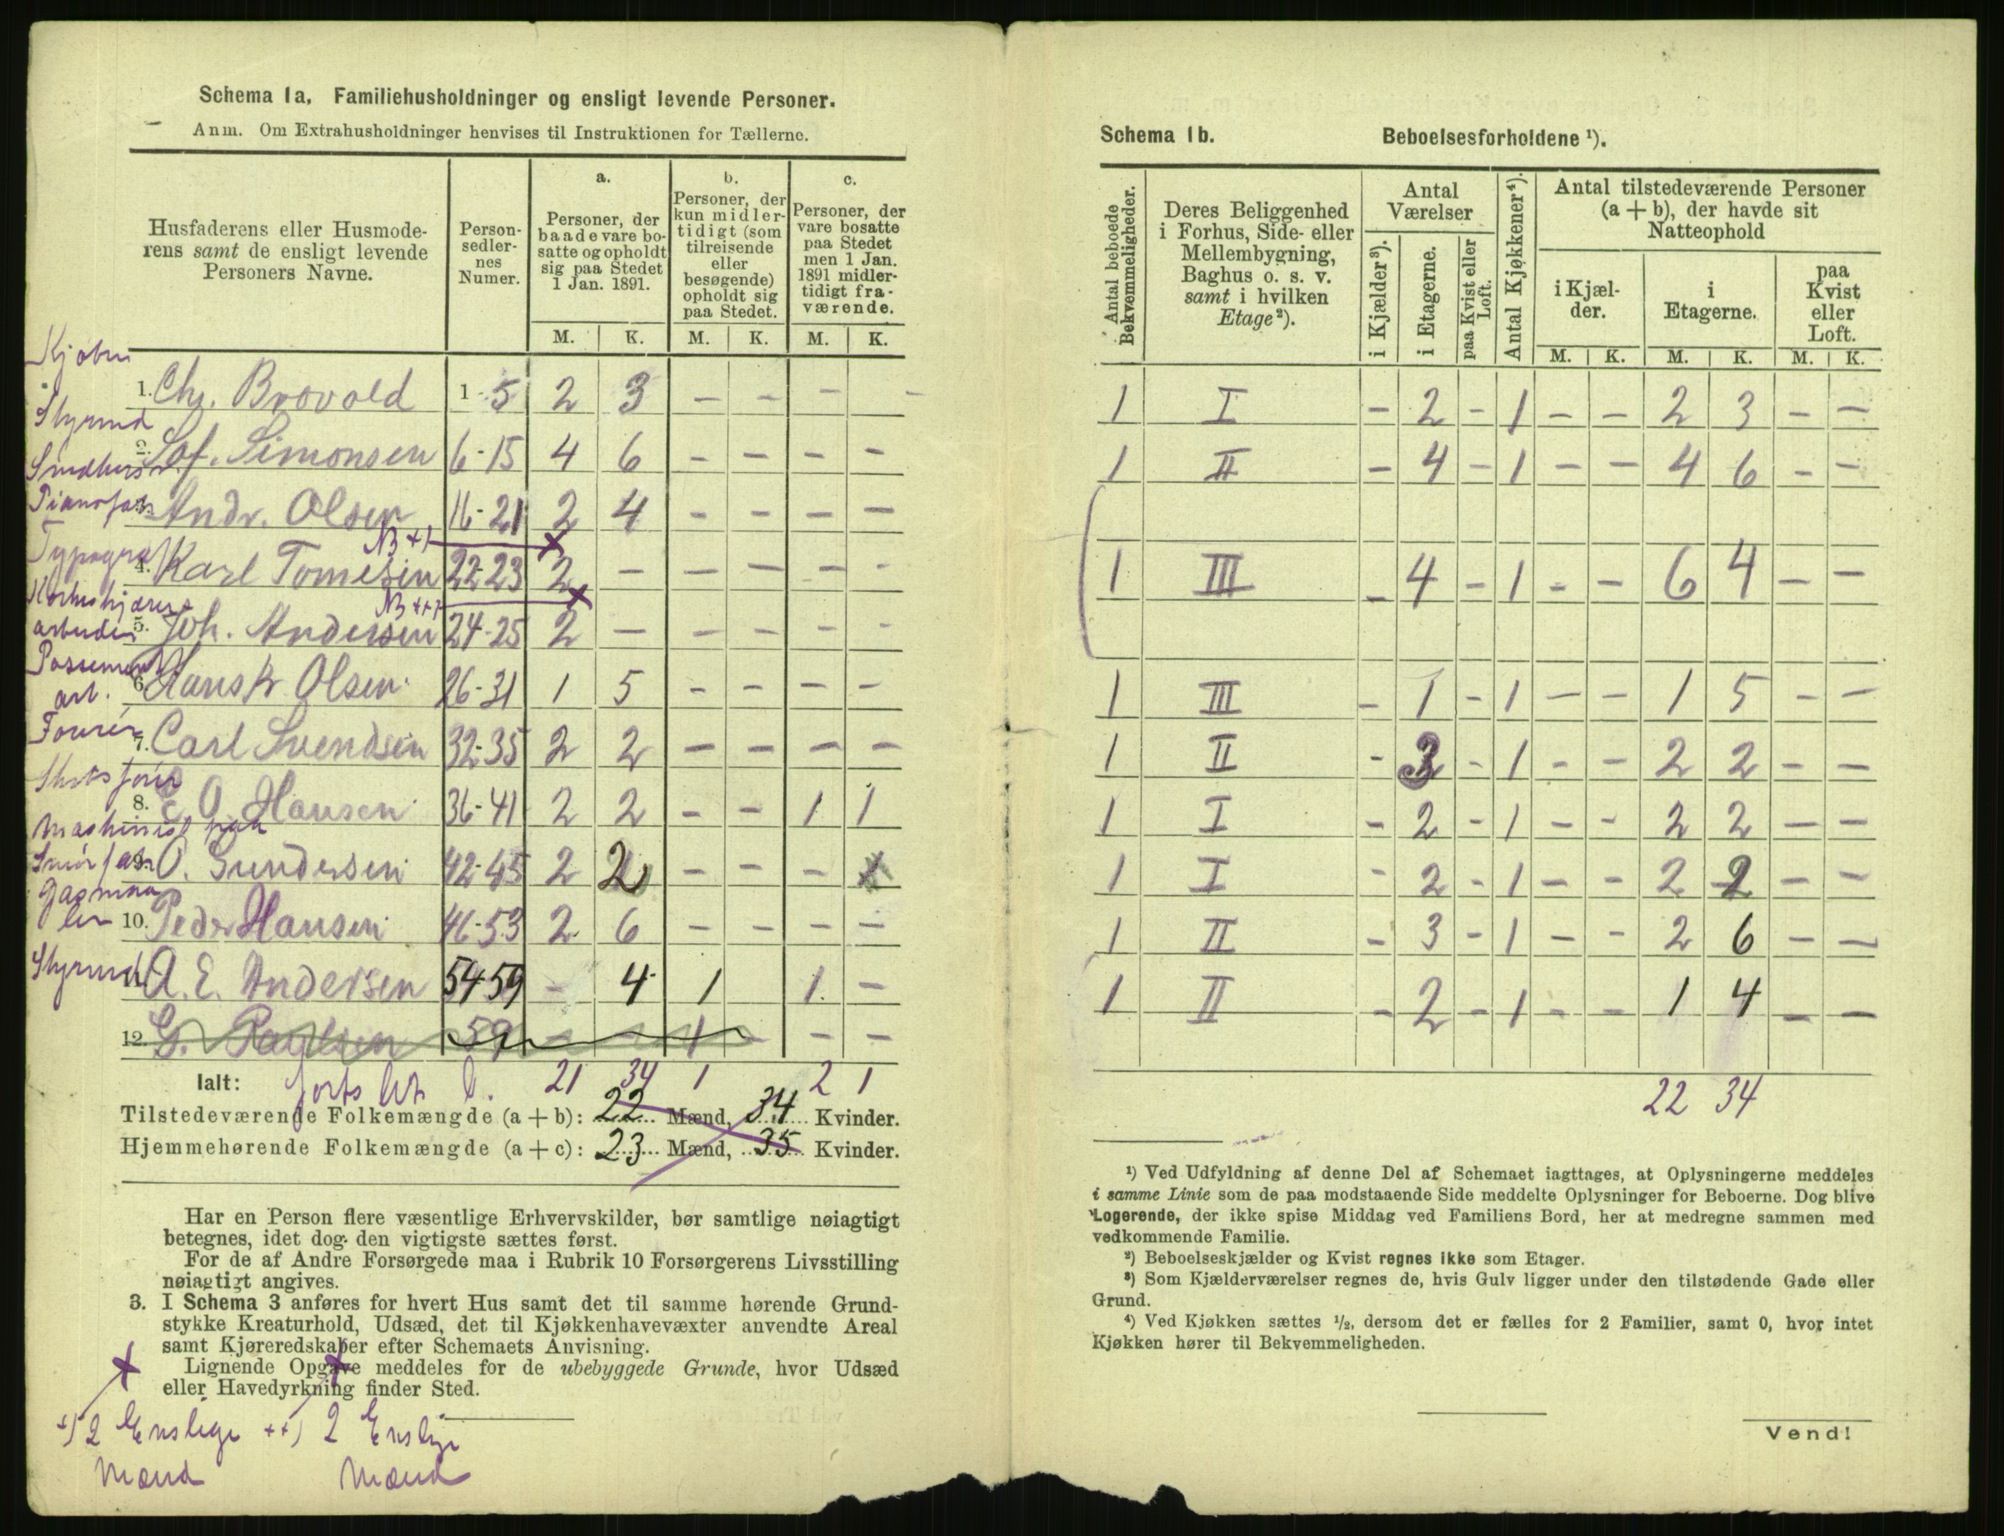 Schema 1a. Familiehusholdninger og ensligt levende Personer.
Anm. Om Extrahusholdninger henvises til Instruktionen for Tællerne.
Husfaderens eller Husmode-
rens samt de ensligt levende
Personers Navne.
Person-
sedler-
nes
Numer.
a.
Personer, der
baade vare bo-
satte og opholdt
sig paa Stedet
1 Jan. 1891.
b.
Personer, der
kun midler-
tidigt (som
tilreisende
eller
besøgende)
opholdt sig
paa Stedet.
c.
Personer, der
vare bosatte
paa Stedet
men 1 Jan.
1891 midler-
tidigt fra-
værende.
M. K. M. K. M. K.
1. Chr. Brovold 1-5 2 3 – – – –
Styrmd
2. Sof. Simonsen 6-15 4 6 – – – –
3. Andr. Olsen 16-21 2 4 – – – –
4. Karl Tomesen 22-23 2 – – – – –
5. Joh. Andersen 24-25 2 – – – – –
arb.
6. Hans Kr. Olsen 26-31 1 5 – – – –
7. Carl Svendsen 32-35 2 2 – – – –
8. C O. Hansen 36-41 2 2 – – 1 1
9. O. Gundersen 42-45 2 2 – – –
10. Peder Hansen 46-53 2 6 – – – –
Styrmd
A. E. Andersen 54-59 – 4 1 1 –
12. G. Paulsen 59 – – 1 – –
Ialt: 21 34 1 2 1
Tilstedeværende Folkemængde (a + b): 22 Mænd, 34 Kvinder.
Hjemmehørende Folkemængde (a + c): 23 Mænd, 35 Kvinder.
Har en Person flere væsentlige Erhvervskilder, bør samtlige nøiagtigt
betegnes, idet dog den vigtigste sættes først.
For de af Andre Forsørgede maa i Rubrik 10 Forsørgerens Livsstilling
nøiagtigt angives.
3. I Schema 3 anføres for hvert Hus samt det til samme hørende Grund-
stykke Kreaturhold, Udsæd, det til Kjøkkenhavevæxter anvendte Areal
samt Kjøreredskaber efter Schemaets Anvisning.
Lignende Opgave meddeles for de ubebyggede Grunde, hvor Udsæd
eller Havedyrkning finder Sted.
+) 2 Enslige ++) 2 Enslige
Mænd Mænd
Schema 1b. Beboelsesforholdene ¹).
Antal beboede
Bekvemmeligheder.
Deres Beliggenhed
i Forhus, Side- eller
Mellembygning,
Baghus o. s. v.
samt i hvilken
Etage²).
Antal
Værelser
i Kjælder³).
i Etagerne.
paa Kvist eller
Loft.
Antal Kjøkkener⁴).
Antal tilstedeværende Personer
(a + b), der havde sit
Natteophold
i Kjæl-
der.
i
Etagerne.
paa
Kvist
eller
Loft.
M. K. M. K. M. K.
1 I – 2 – 1 – – 2 3 – –
1 II – 4 – 1 – – 4 6 – –
1 III – 4 – 1 – – 6 4 – –
1 III – 1 – 1 – – 1 5 – –
1 II – 3 – 1 – – 2 2 – –
1 I – 2 – 1 – – 2 2 – –
1 I – 2 – 1 – – 2 2 – –
1 II – 3 – 1 – – 2 6 – –
1 II – 2 – 1 – – 1 4 – –
22 34
¹) Ved Udfyldning af denne Del af Schemaet iagttages, at Oplysningerne meddeles
i samme Linie som de paa modstaaende Side meddelte Oplysninger for Beboerne. Dog blive
Logerende, der ikke spise Middag ved Familiens Bord, her at medregne sammen med
vedkommende Familie.
²) Beboelseskjælder og Kvist regnes ikke som Etager.
³) Som Kjælderværelser regnes de, hvis Gulv ligger under den tilstødende Gade eller
Grund.
⁴) Ved Kjøkken sættes ½, dersom det er fælles for 2 Familier, samt 0, hvor intet
Kjøkken hører til Bekvemmeligheden.
Vend!